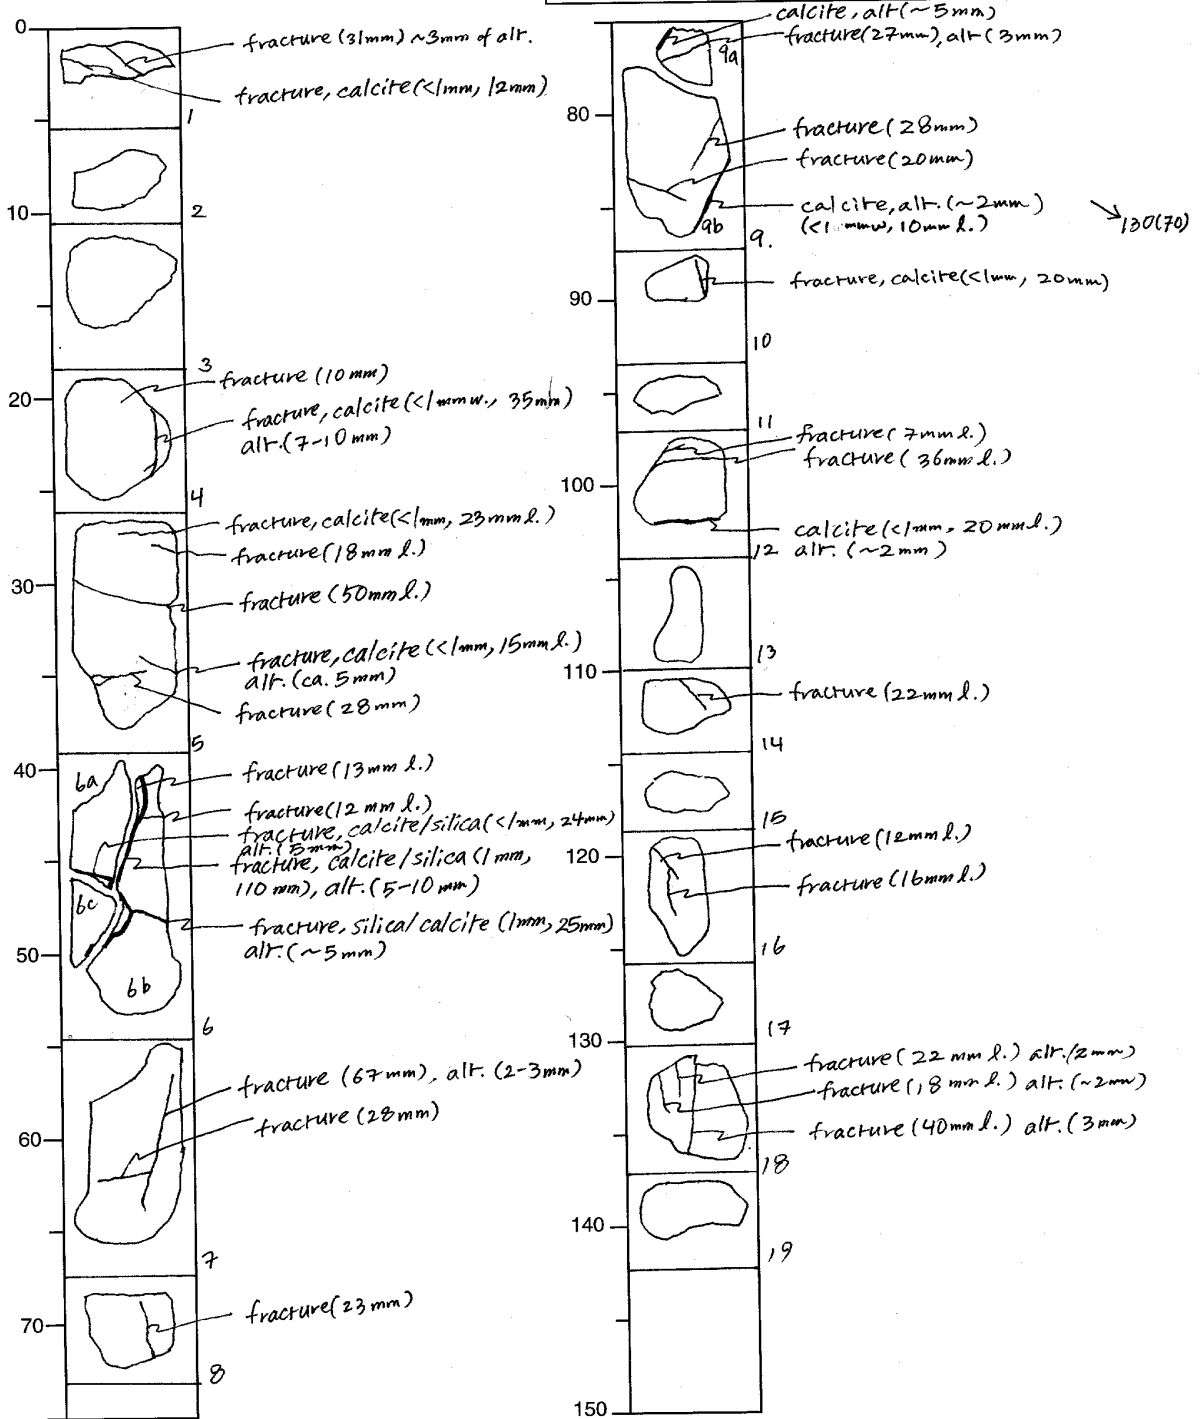 0
fracture (31mm) ~3mm of alt.
fracture, calcite (<1mm, 12mm)
1
2
10
3
fracture (10mm)
20
fracture, calcite (<1mmw., 35mm)
alt. (7-10mm)
4
fracture, calcite (<1mm, 23mm l.)
fracture (18mm l.)
30
fracture (50mm l.)
fracture, calcite (<1mm, 15mm l.)
alt. (ca. 5mm)
fracture (28mm)
5
40
6a
fracture (13mm l.)
fracture (12mm l.)
fracture, calcite/silica (<1mm, 24mm)
alt. (5mm)
fracture, calcite/silica (1mm,
110mm), alt. (5-10mm)
6c
fracture, silica/calcite (1mm, 25mm)
alt. (~5mm)
50
6b
6
fracture (67mm), alt. (2-3mm)
fracture (28mm)
60
7
fracture (23mm)
70
8
calcite, alt (~5mm)
fracture (27mm), alt (3mm)
9a
80
fracture (28mm)
fracture (20mm)
calcite, alt. (~2mm)
(<1 mmw, 10mm l.)
130(70)
9b
9.
fracture, calcite (<1mm, 20mm)
90
10
11
fracture (7mm l.)
fracture (36mm l.)
100
calcite (<1mm, 20mm l.)
12 alt. (~2mm)
13
110
fracture (22mm l.)
14
15
fracture (12mm l.)
120
fracture (16mm l.)
16
17
130
fracture (22mm l.) alt. (2mm)
fracture (18mm l.) alt. (~2mm)
fracture (40mm l.) alt. (3mm)
18
140
19
150